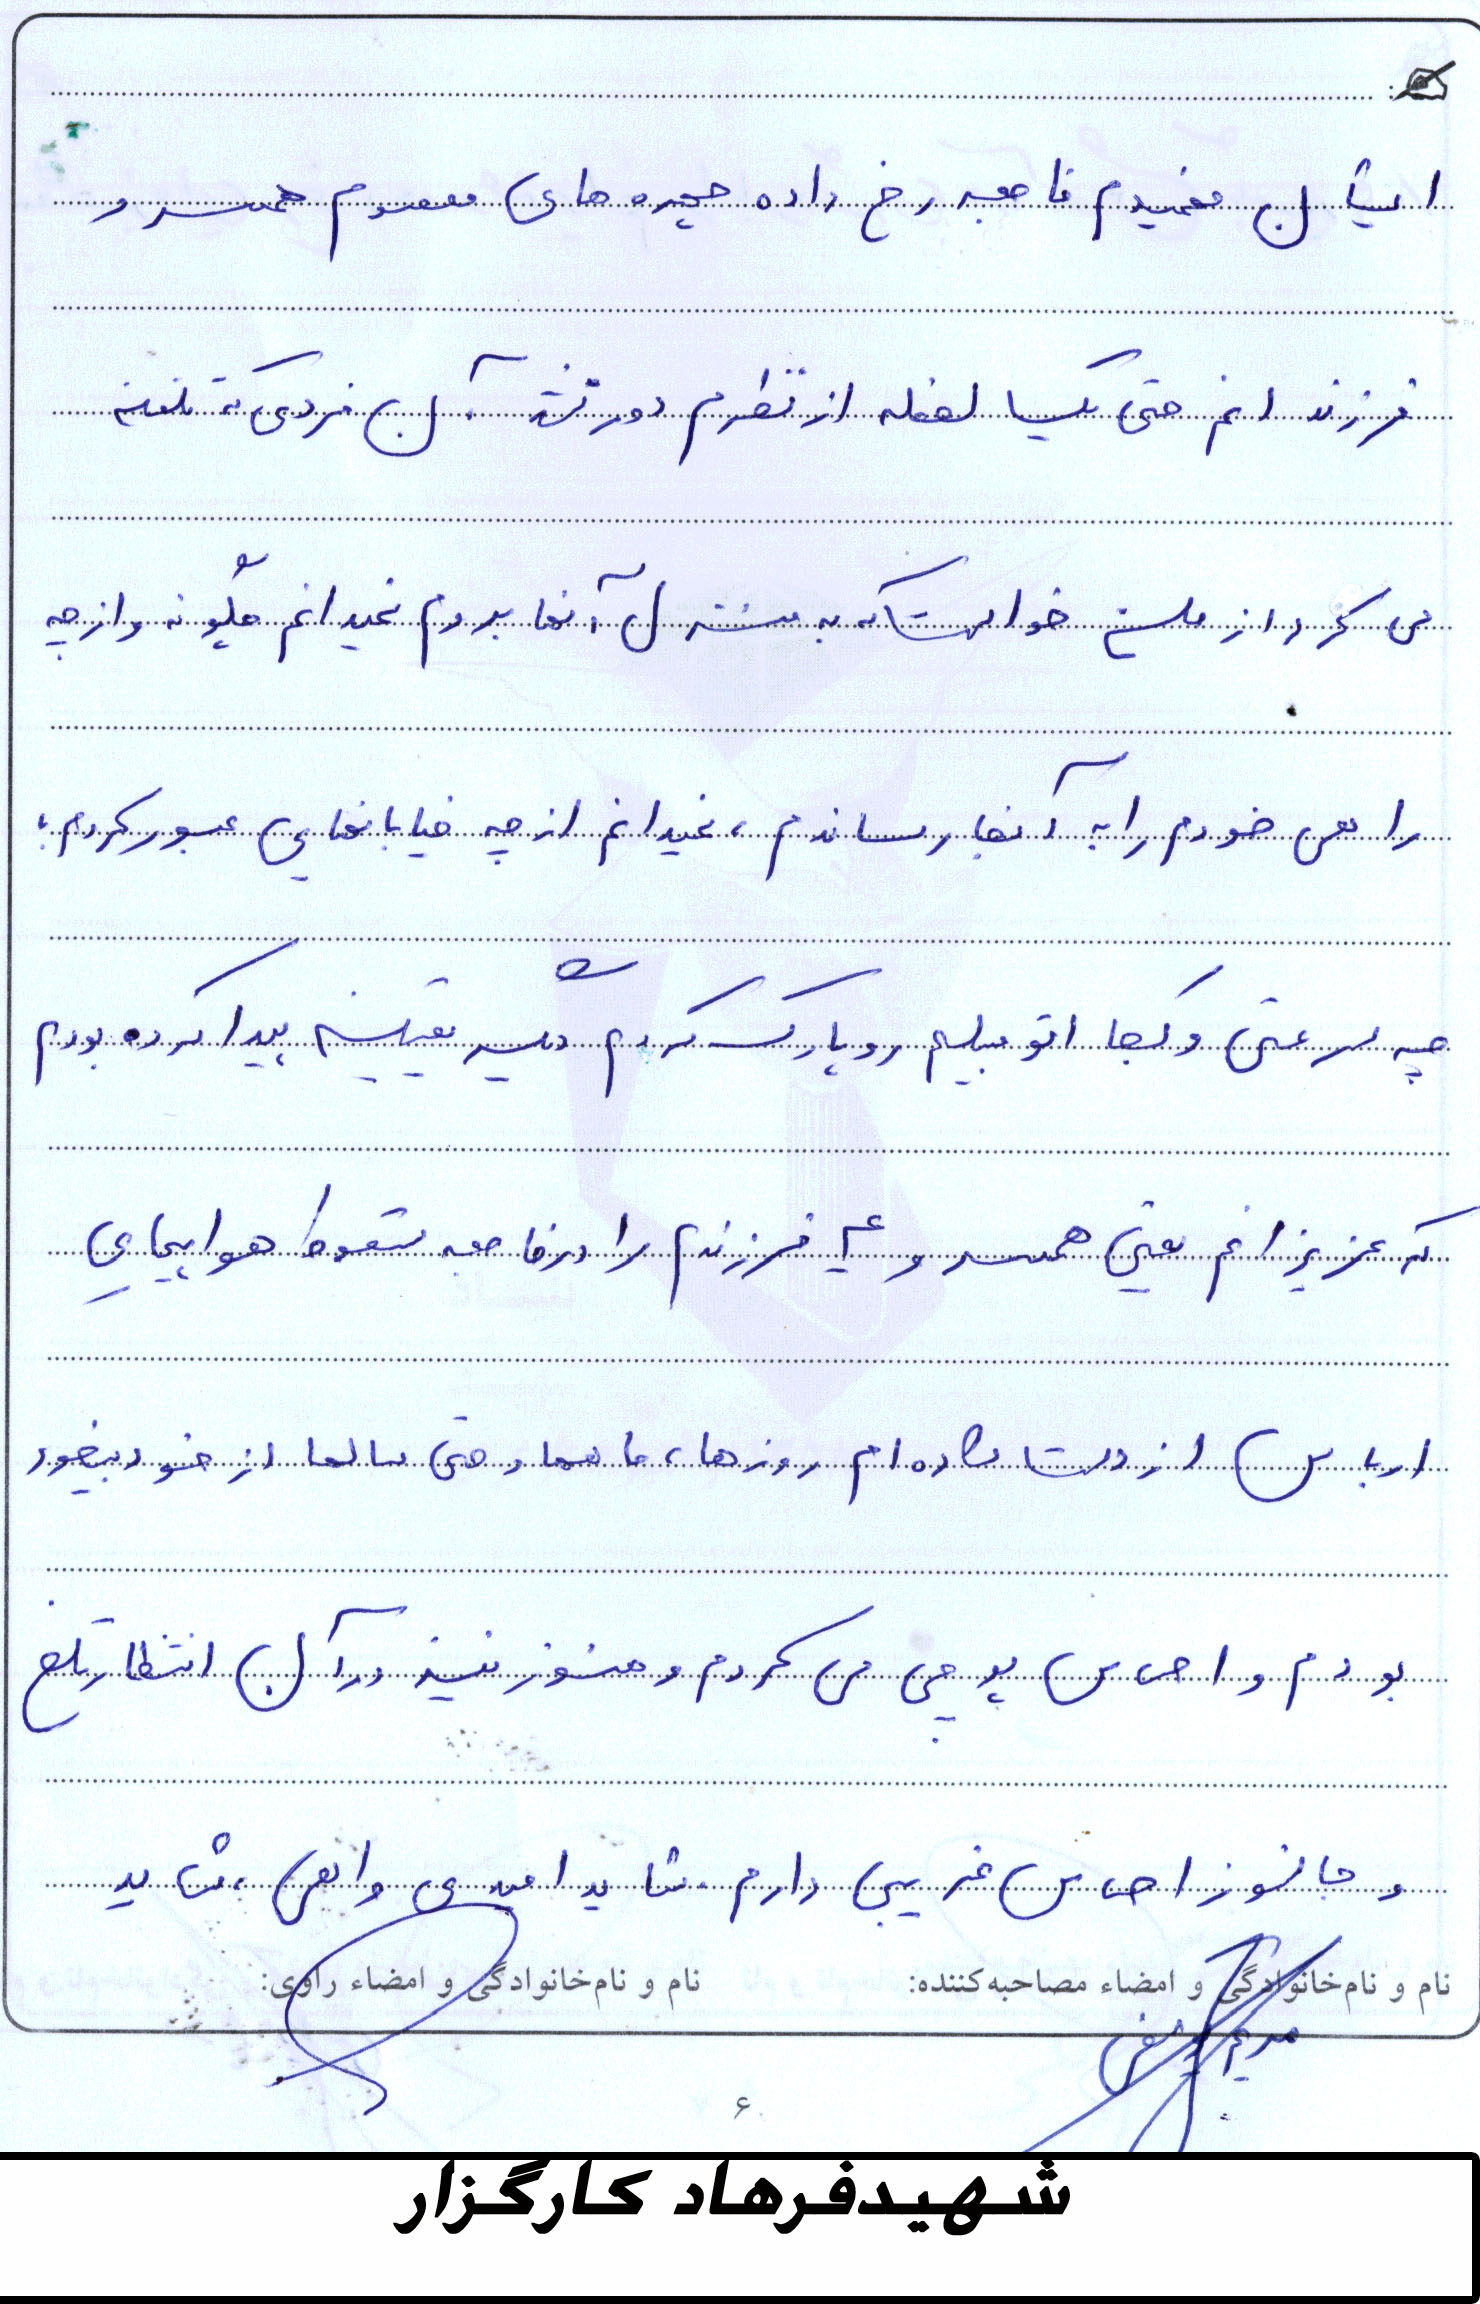 ایشان فهمیدم فاجعه رخ داده چهره های معصوم همسر و
فرزندانم حتی یک لحظه از نظرم دور نشد. آن فردی که تلفن
می کرد از من خواست که به منزل آنها بروم نمیدانم چگونه و از چه
راهی خودم را به آنجا رساندم، نمیدانم از چه خیابانهایی عبور کردم،
چه سرعتی و کجا اتومبیلم رو پارک کردم دیگر یقین پیدا کرده بودم
که عزیزانم یعنی همسر و ۴ فرزندم را در فاجعه سقوط هواپیمایِ
ارباس از دست داده ام روزها، ماهها و حتی سالها از خود بیخود
بودم و احساس پوچی می کردم و هنوز نیز در آن انتظار تلخ
و جانسوز احساس غریبی دارم. شاید امیدی واهی، شاید
نام و نام‌خانوادگی و امضاء مصاحبه‌کننده: نام و نام‌خانوادگی و امضاء راوی:
مریم
۶
شهیدفرهاد کارگزار